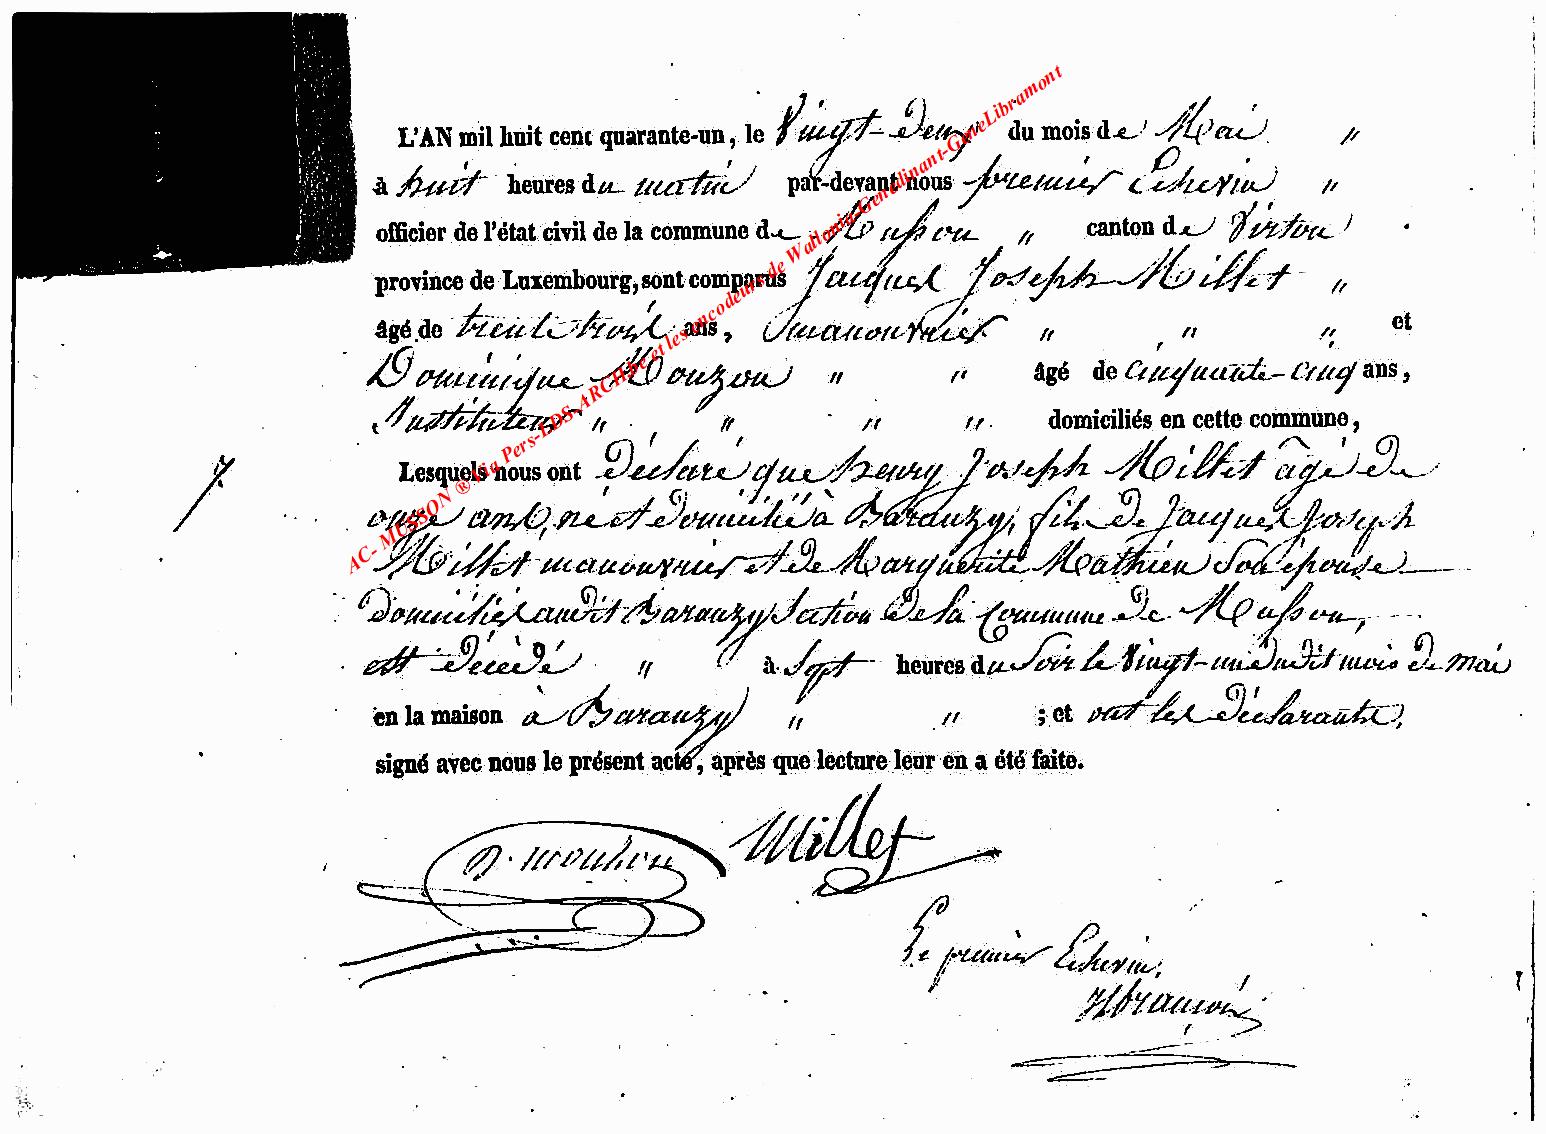 L'AN mil huit cent quarante-un, le Vingt-deux du mois de Mai "
à huit heures du matin par-devant nous premier Echevin "
officier de l'état civil de la commune de Musson " canton de Virton
province de Luxembourg, sont comparus Jacques Joseph Millet "
âgé de trente trois ans, manouvrier " " " et
Dominique Mouzon " " âgé de cinquante-cinq ans,
Instituteur " " " " domiciliés en cette commune,
Lesquels nous ont déclaré que henry Joseph Millet âgé de
7.
onze ans, né et domicilié à Baranzy, fils de Jacques Joseph
Millet manouvrier et de Marguerite Mathieu son épouse
domiciliés audit Baranzy section de la Commune de Musson,
est décédé " à sept heures du soir le vingt-un dudit mois de mai
en la maison à Baranzy " " ; et ont les déclarants,
signé avec nous le présent acte, après que lecture leur en a été faite.
AC- MUSSON ® Via Pers-LDS-ARCH.be et les encodeurs de Wallonia-Gendinant-GeneLibramont
D. mouhon Millet
Le premier Echevin,